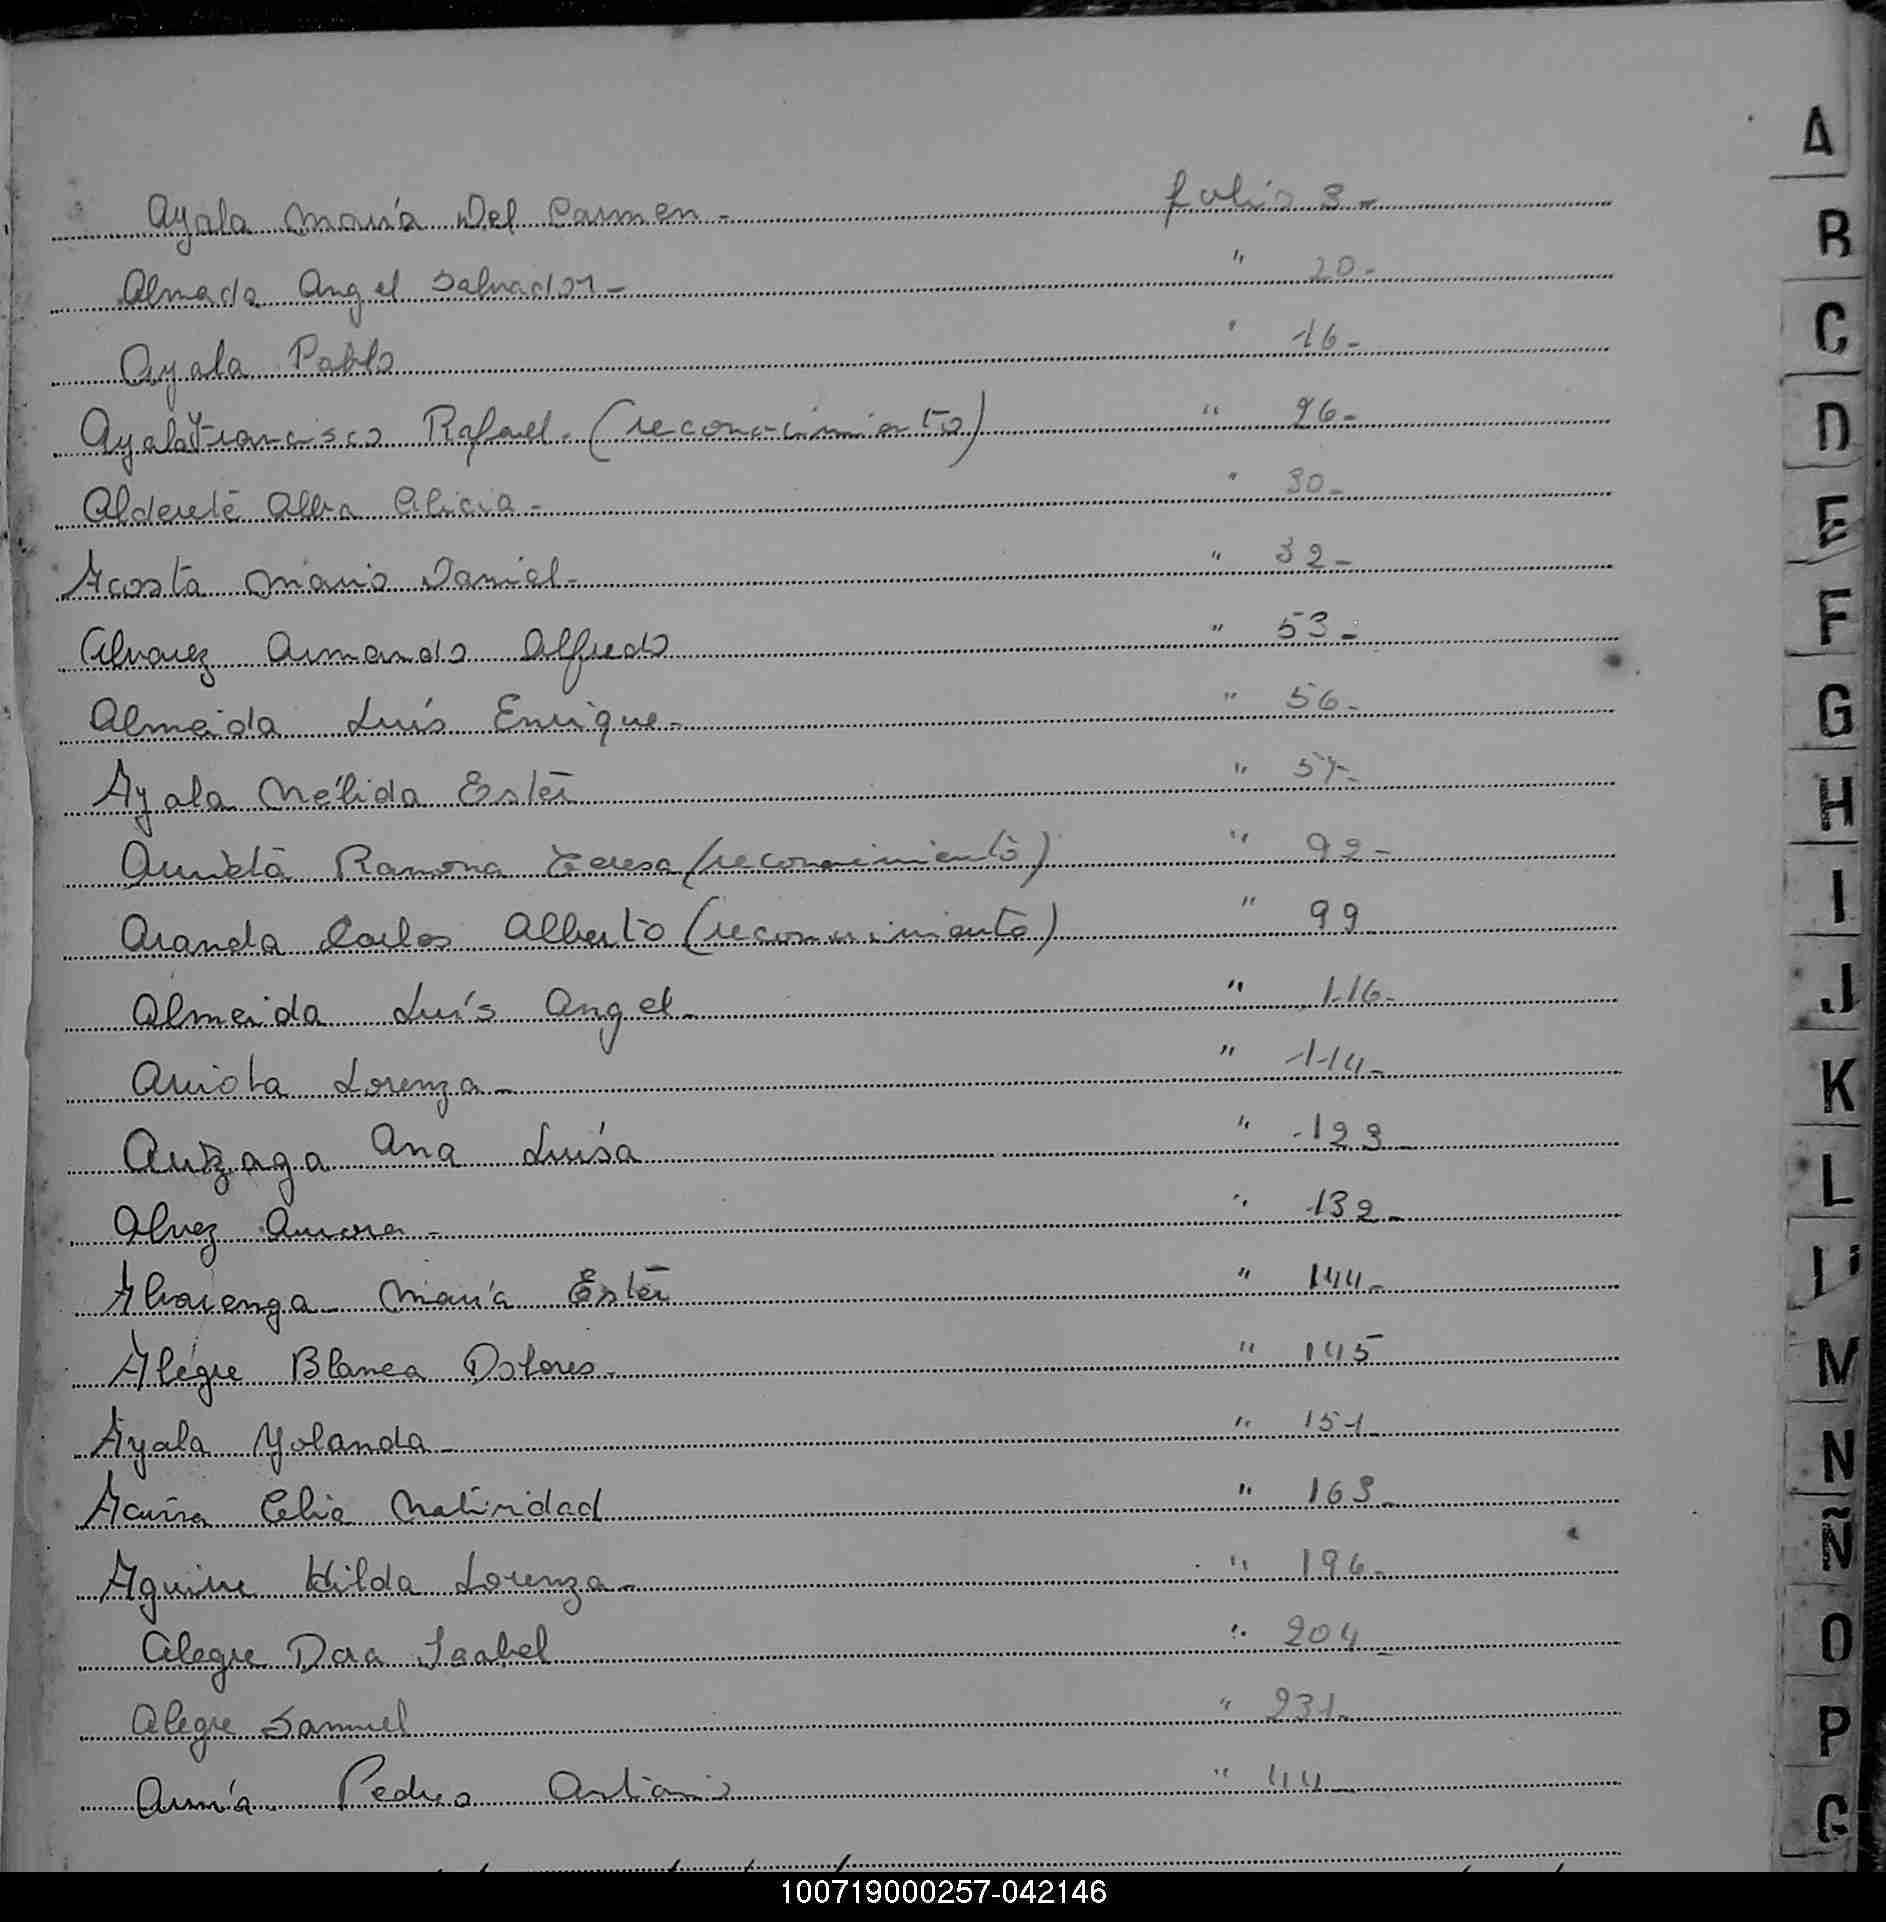 Ayala María Del Carmen - folio 3 -
Almada Angel Salvador - " 20 -
Ayala Pablo " 16 -
Ayala Francisco Rafael - (reconocimiento) " 26 -
Alderete Alba Alicia - " 30 -
Acosta Mario Daniel - " 32 -
Alvarez Armando Alfredo " 53 -
Almeida Luís Enrique - " 56 -
Ayala Nélida Ester " 57 -
Ramona Teresa (reconocimiento) " 92 -
Aranda Carlos Alberto (reconocimiento) " 99 -
Almeida Luís Angel - " 116 -
Lorenza - " 114 -
Ana Luísa " 123 -
Alvez Aurora - " 132 -
Alvarenga María Ester " 144 -
Alégre Blanca Dolores - " 145
Ayala Yolanda - " 151 -
Acuña Celia Natividad " 163 -
Aguirre Hilda Lorenza - " 196 -
Alegre Dora Isabel " 204 -
Alegre Samuel " 231 -
Pedro Antonio " 44 -
A
B
C
D
E
F
G
H
I
J
K
L
M
N
Ñ
O
P
100719000257-042146